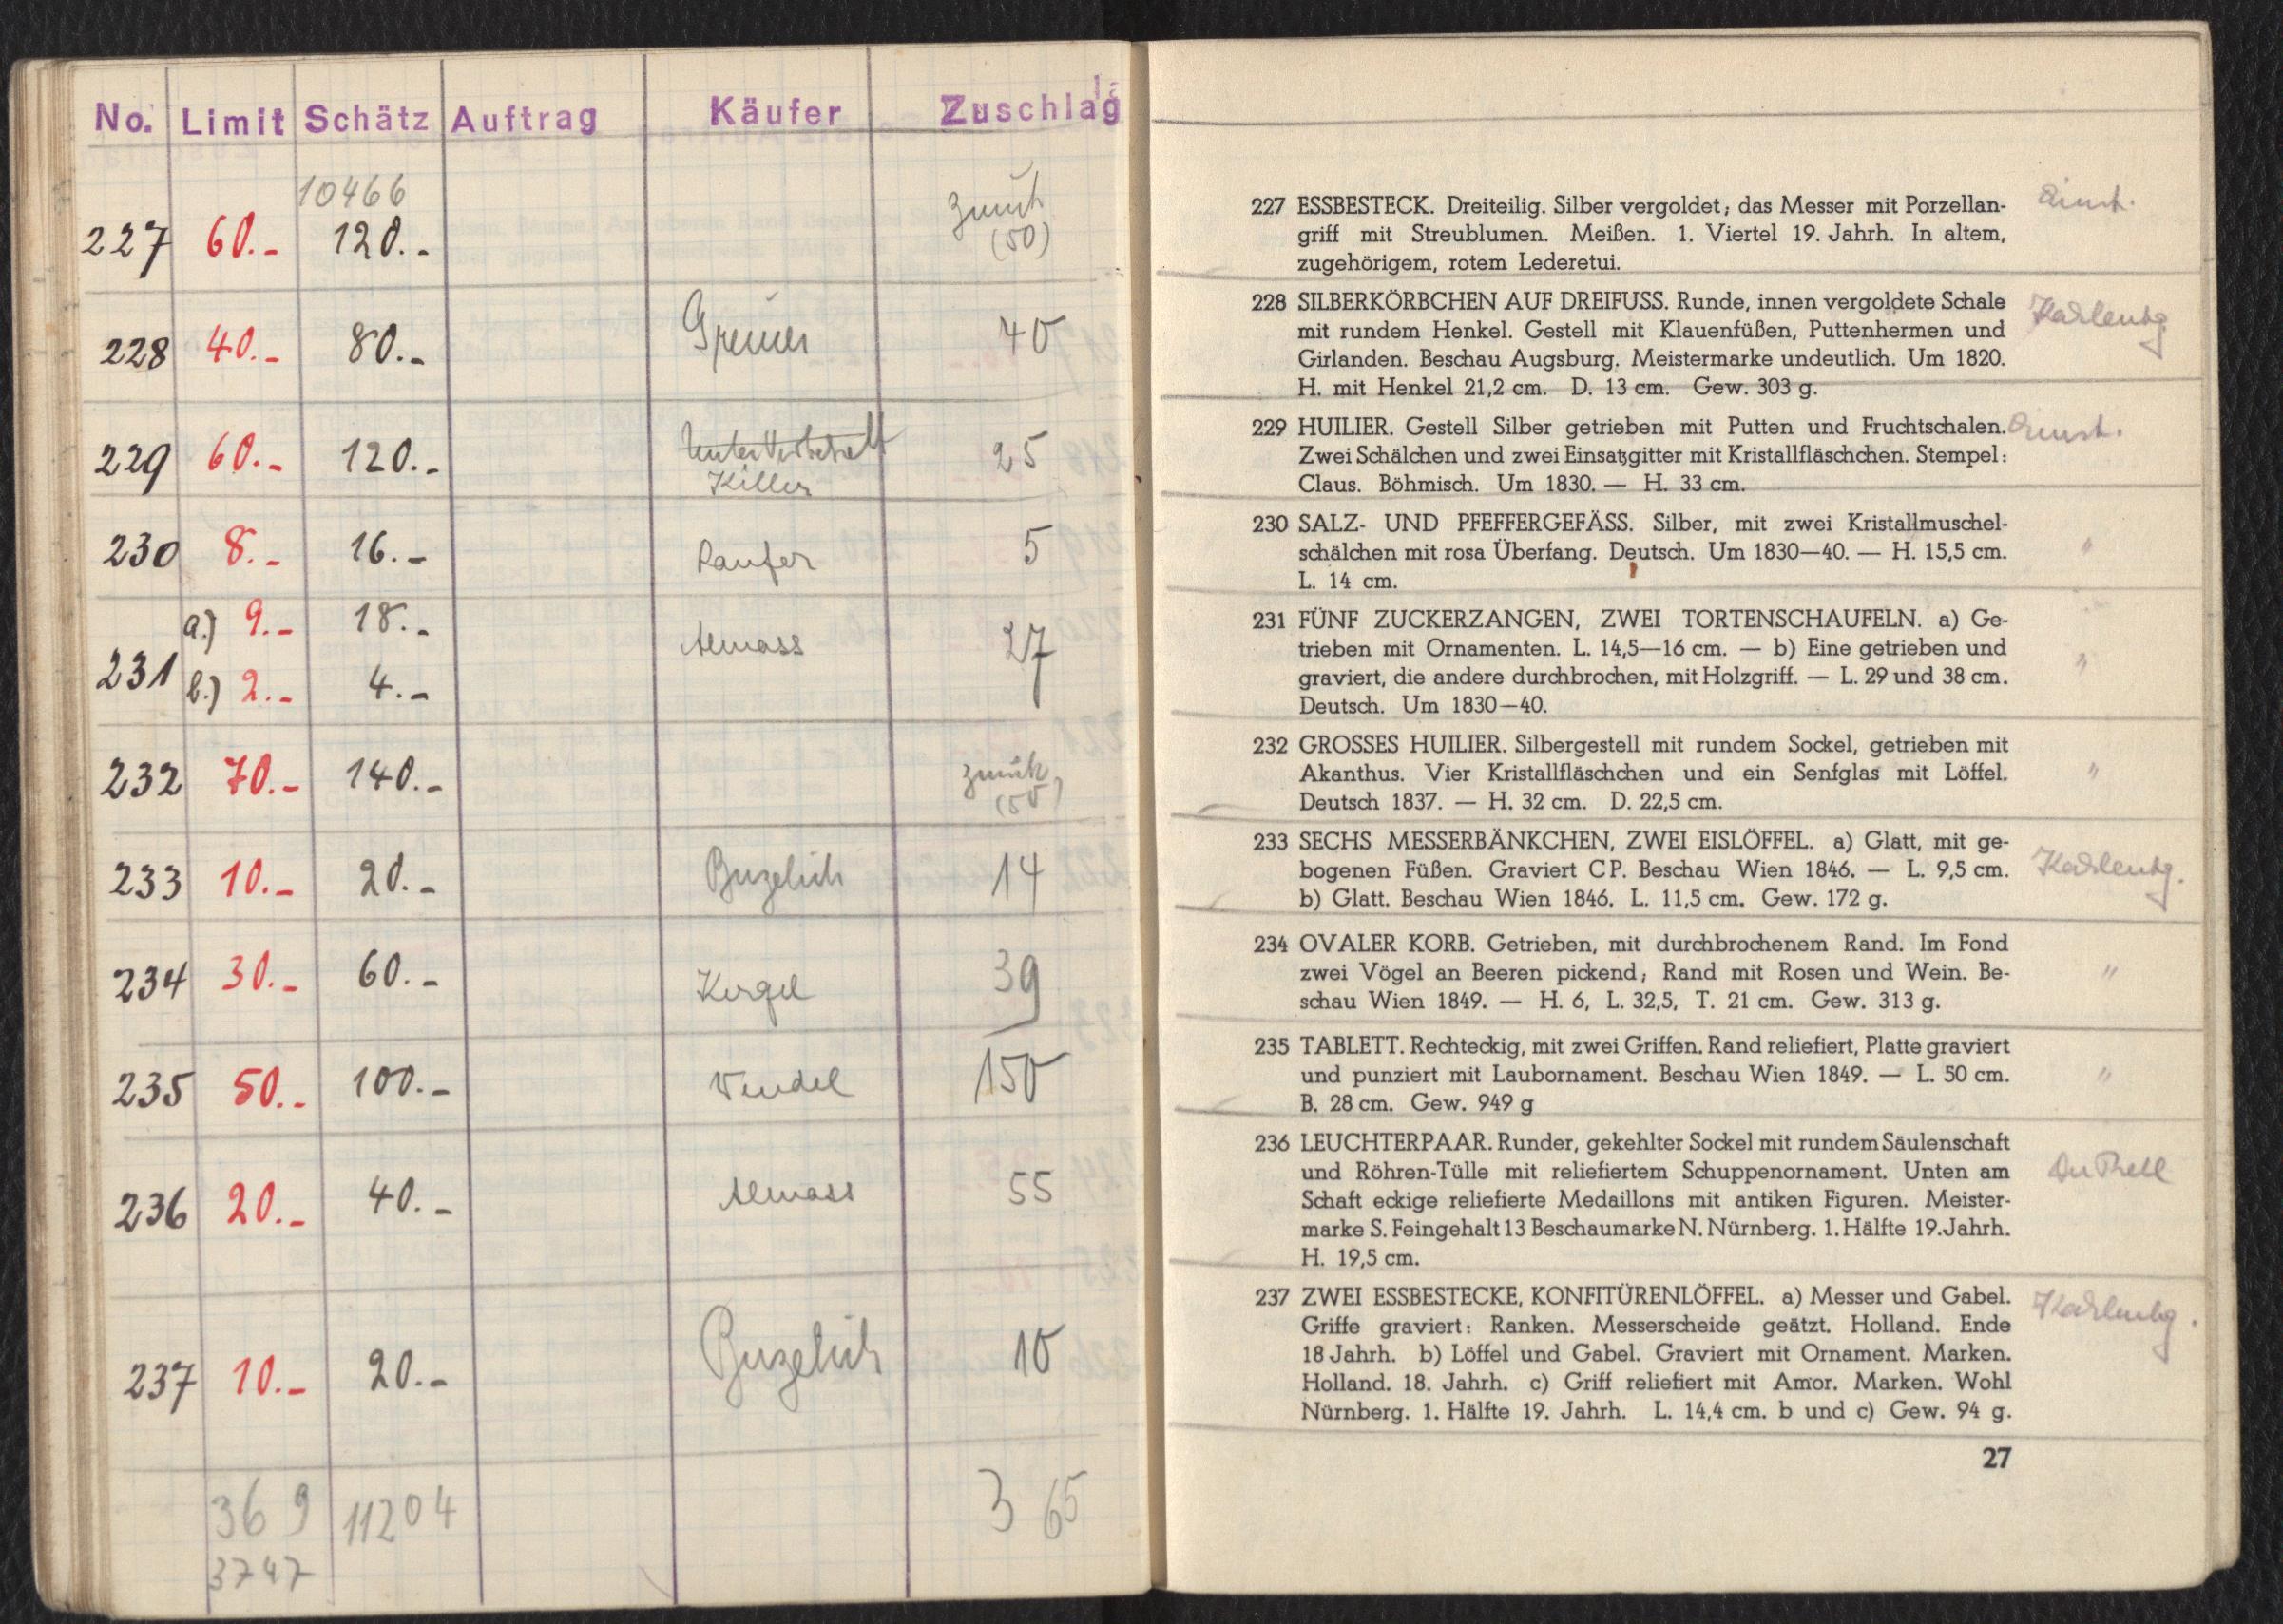 No. Limit Schätz Auftrag Käufer Zuschlag
10466
227 60.- 120.- zurück
(50)
228 40.- 80.- Greiner 40
229 60.- 120.- 25
Killer
230 8.- 16.- Raufer 5
a.) 9.- 18.-
231 Almass 27
b.) 2.- 4.-
232 70.- 140.- zurück
(50)
233 10.- 20.- 14
234 30.- 60.- Kergel 39
235 50.- 100.- Wendel 150
236 20.- 40.- Almass 55
237 10.- 20.- 10
369 11204 365
3747
227 ESSBESTECK. Dreiteilig. Silber vergoldet; das Messer mit Porzellan-
griff mit Streublumen. Meißen. 1. Viertel 19. Jahrh. In altem,
zugehörigem, rotem Lederetui.
228 SILBERKÖRBCHEN AUF DREIFUSS. Runde, innen vergoldete Schale
mit rundem Henkel. Gestell mit Klauenfüßen, Puttenhermen und
Girlanden. Beschau Augsburg. Meistermarke undeutlich. Um 1820.
H. mit Henkel 21,2 cm. D. 13 cm. Gew. 303 g.
229 HUILIER. Gestell Silber getrieben mit Putten und Fruchtschalen.
Zwei Schälchen und zwei Einsatzgitter mit Kristallfläschchen. Stempel:
Claus. Böhmisch. Um 1830. — H. 33 cm.
230 SALZ- UND PFEFFERGEFÄSS. Silber, mit zwei Kristallmuschel-
schälchen mit rosa Überfang. Deutsch. Um 1830—40. — H. 15,5 cm. "
L. 14 cm.
231 FÜNF ZUCKERZANGEN, ZWEI TORTENSCHAUFELN. a) Ge-
trieben mit Ornamenten. L. 14,5—16 cm. — b) Eine getrieben und "
graviert, die andere durchbrochen, mit Holzgriff. — L. 29 und 38 cm.
Deutsch. Um 1830—40.
232 GROSSES HUILIER. Silbergestell mit rundem Sockel, getrieben mit
Akanthus. Vier Kristallfläschchen und ein Senfglas mit Löffel. "
Deutsch 1837. — H. 32 cm. D. 22,5 cm.
233 SECHS MESSERBÄNKCHEN, ZWEI EISLÖFFEL. a) Glatt, mit ge-
bogenen Füßen. Graviert CP. Beschau Wien 1846. — L. 9,5 cm.
b) Glatt. Beschau Wien 1846. L. 11,5 cm. Gew. 172 g.
234 OVALER KORB. Getrieben, mit durchbrochenem Rand. Im Fond
zwei Vögel an Beeren pickend; Rand mit Rosen und Wein. Be- "
schau Wien 1849. — H. 6, L. 32,5, T. 21 cm. Gew. 313 g.
235 TABLETT. Rechteckig, mit zwei Griffen. Rand reliefiert, Platte graviert
und punziert mit Laubornament. Beschau Wien 1849. — L. 50 cm. "
B. 28 cm. Gew. 949 g
236 LEUCHTERPAAR. Runder, gekehlter Sockel mit rundem Säulenschaft
und Röhren-Tülle mit reliefiertem Schuppenornament. Unten am
Schaft eckige reliefierte Medaillons mit antiken Figuren. Meister-
marke S. Feingehalt 13 Beschaumarke N. Nürnberg. 1. Hälfte 19. Jahrh.
H. 19,5 cm.
237 ZWEI ESSBESTECKE, KONFITÜRENLÖFFEL. a) Messer und Gabel.
Griffe graviert: Ranken. Messerscheide geätzt. Holland. Ende
18 Jahrh. b) Löffel und Gabel. Graviert mit Ornament. Marken.
Holland. 18. Jahrh. c) Griff reliefiert mit Amor. Marken. Wohl
Nürnberg. 1. Hälfte 19. Jahrh. L. 14,4 cm. b und c) Gew. 94 g.
27